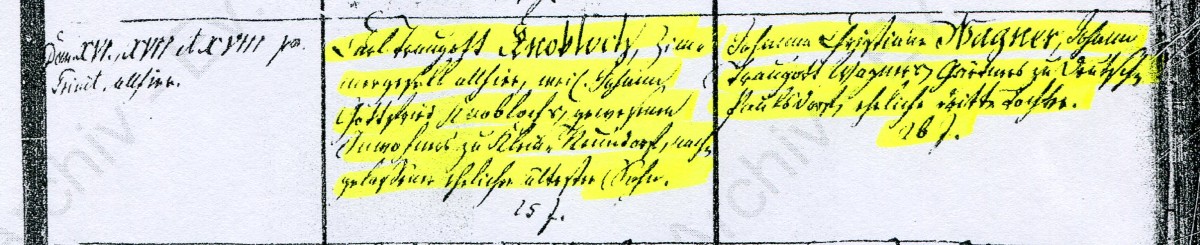 Dom. XVI, XVII et XVIII p.
Trinit. allhier.
Carl Traugott Knobloch, Zim=
mergesell allhier, weil. Johann
Gottfried Knoblochs, gewesenen
Inwohners zu Klein Neundorf, nach=
gelassener ehelicher ältester Sohn.
25 J.
Johanne Christiane Wagner, Johann
Traugott Wagners, Gärtners zu Deutsch=
Paulsdorf, eheliche dritte Tochter.
26 J.